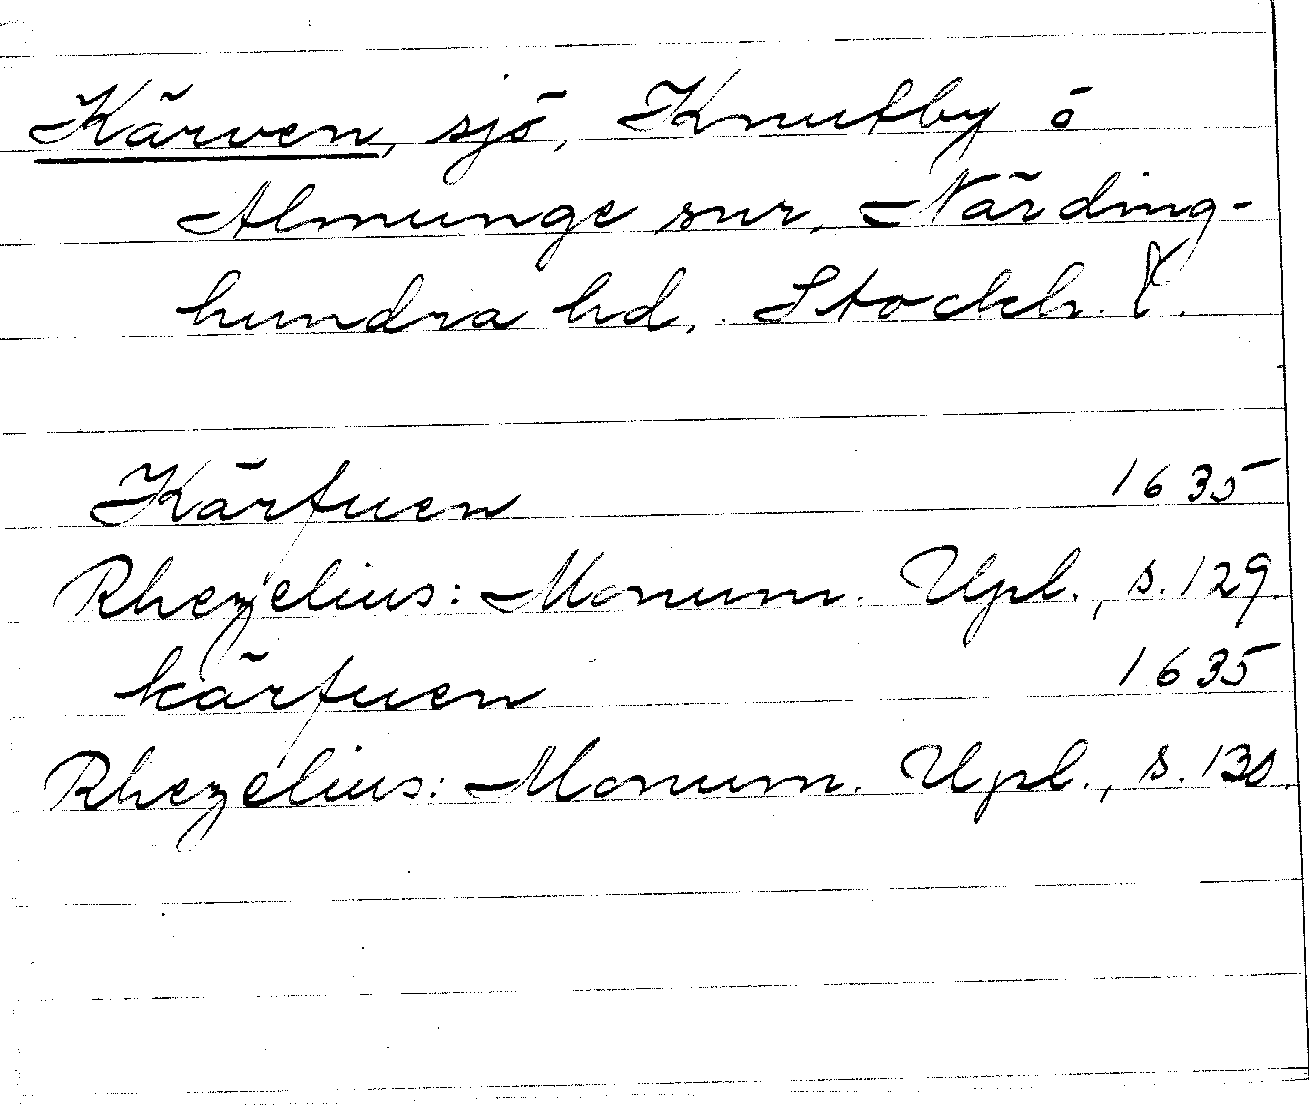 Kärven, sjö, Knutby o
Almunge snr, Närding-
hundra hd, Stockh. l.
Kärfuen 1635
Rhezelius: Monum. Upl., s. 129.
kärfuen 1635
Rhezelius: Monum. Upl., s. 130.